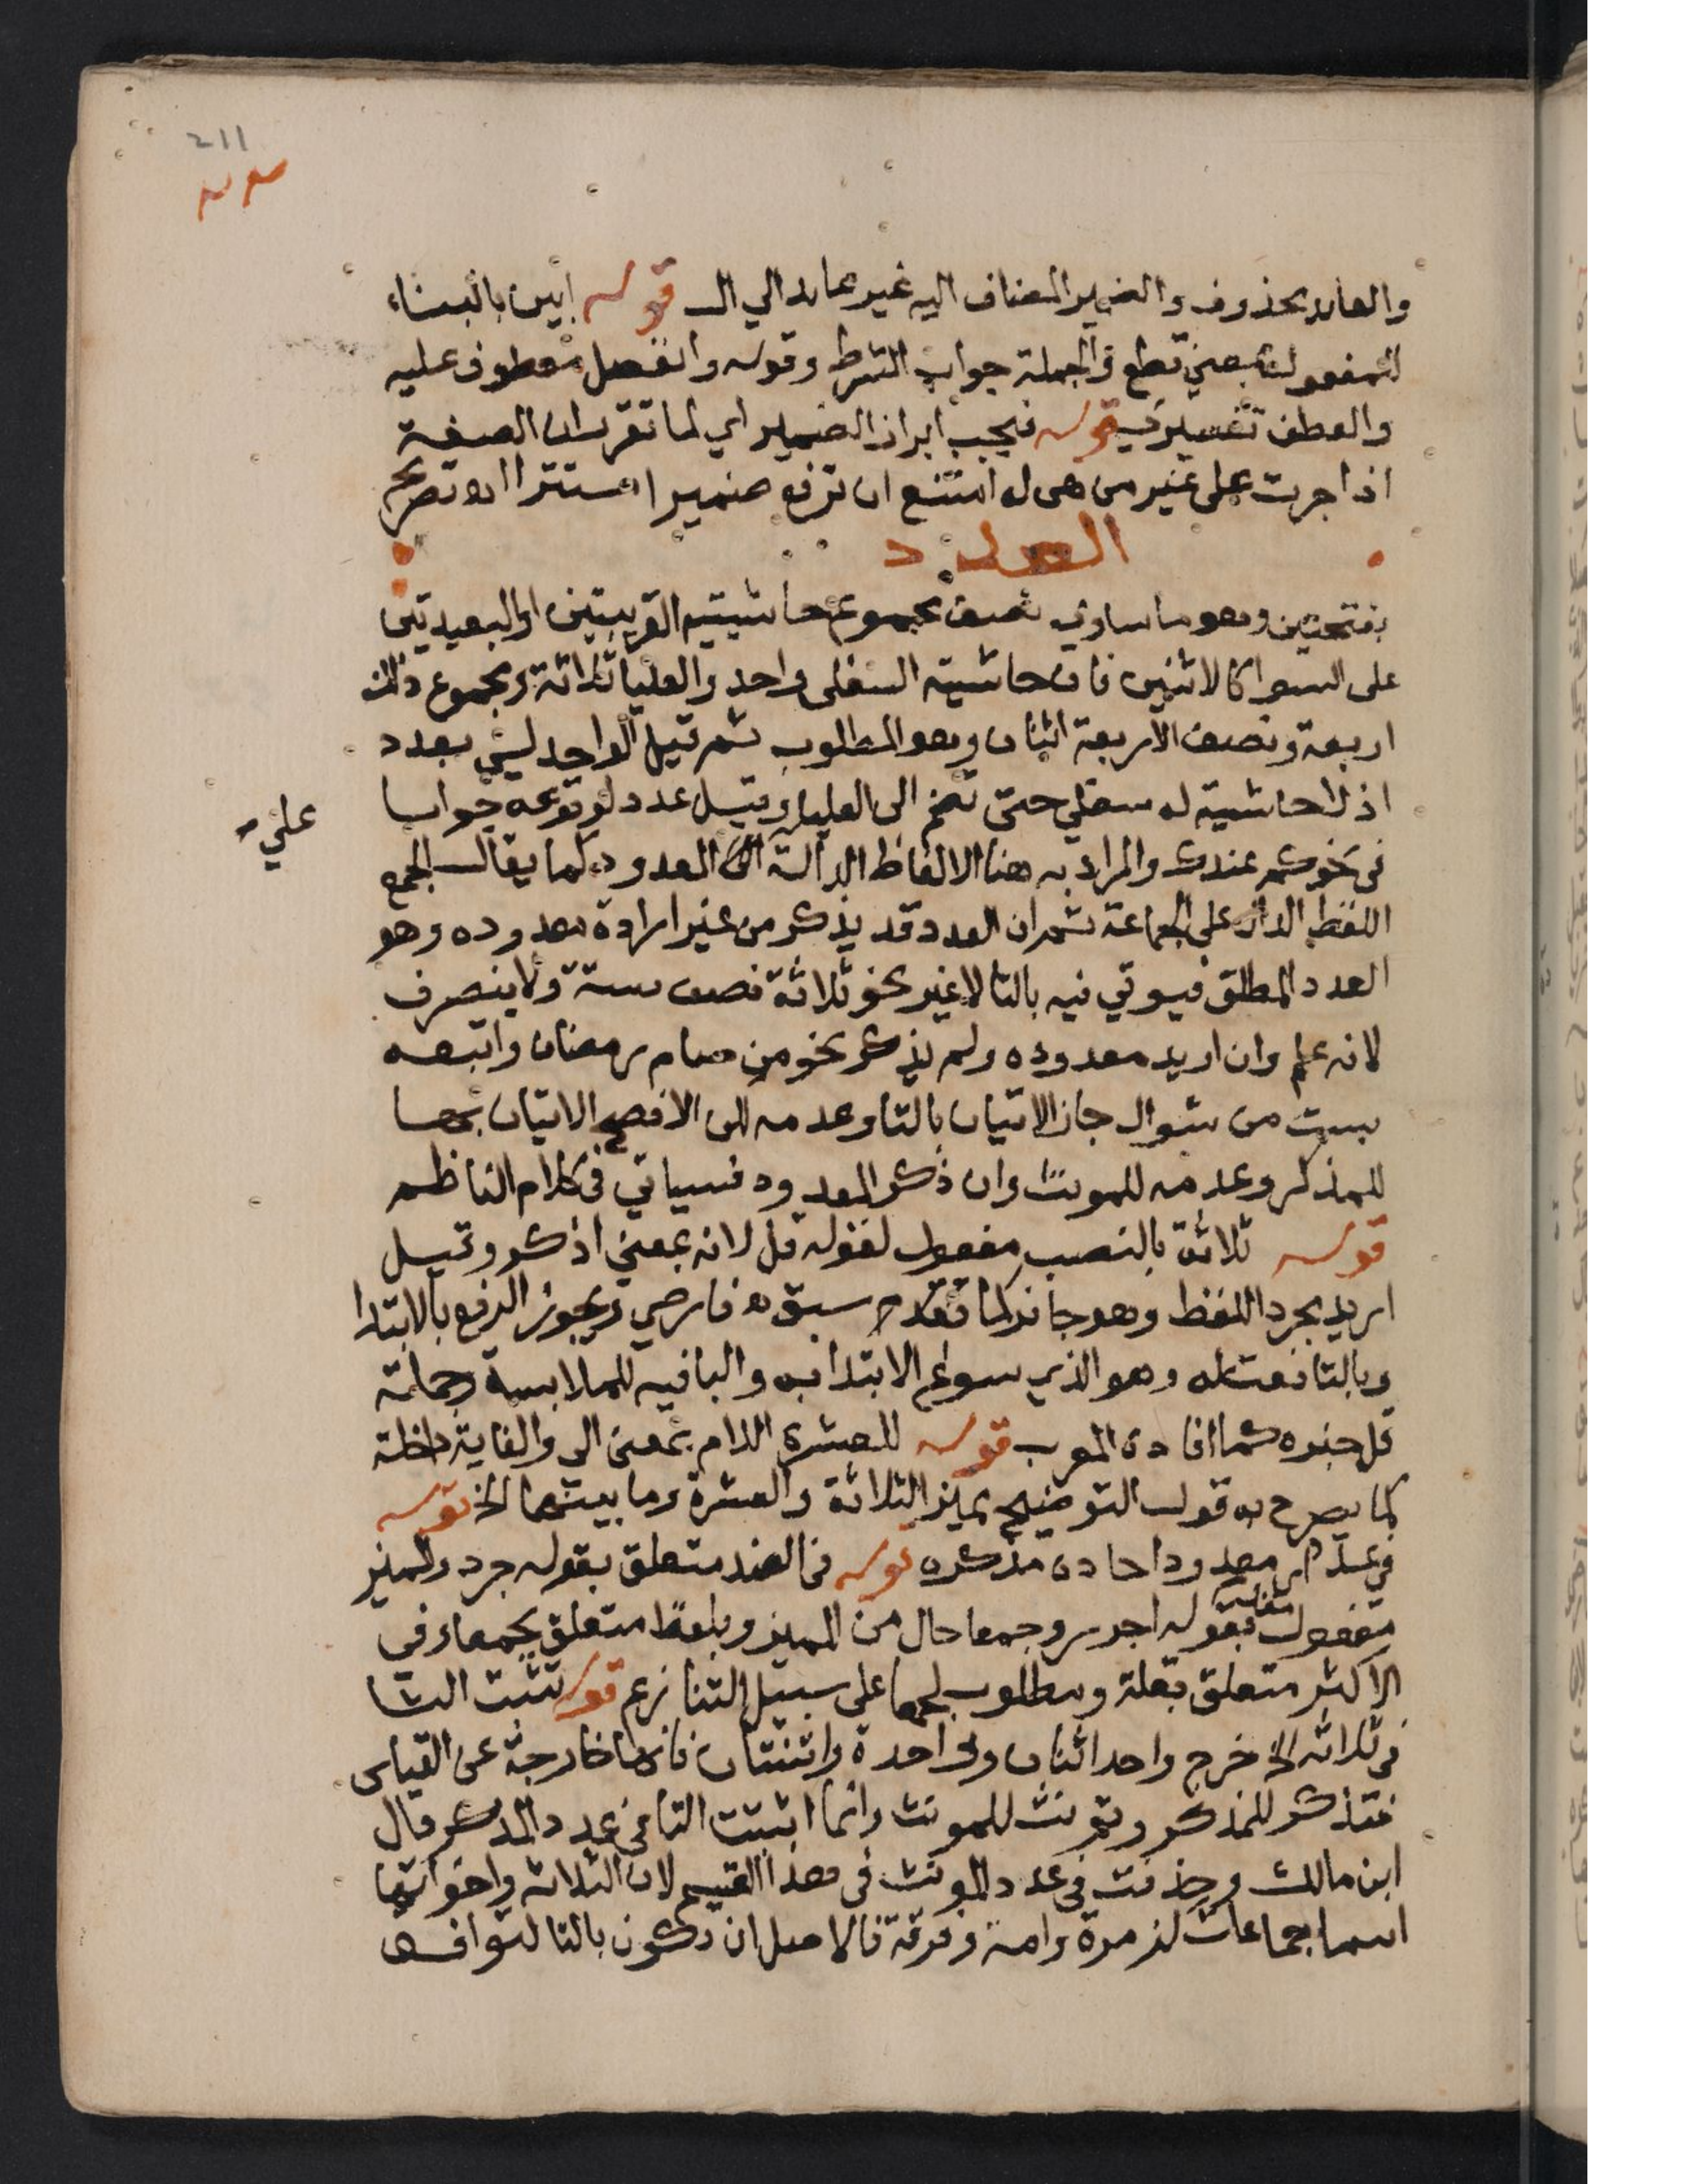 211
والعايد محذوف والضمير المضاف اليه غير عايد الي ال قوله ابين بالبناء
للمفعول بمعني قطع والجملة جواب الشرط وقوله وانفصل معطوف عليه
والعطف تفسيري قوله فيجب ابراز الضمير اي لما تقرر ان الصفة
اذا جرت على غير من هي له امتنع ان ترفع ضميرا مستترا اه تصريح
العدد
بفتحتين وهو ما ساوي نصف مجموع حاشيتيه القريبتين او البعيدتين
على السوا كالاثنين فان حاشيته السفلى واحد والعليا ثلاثة ومجموع ذلك
اربعة ونصف الاربعة اثنان وهو المطلوب ثم قيل الواحد ليس بعدد
اذ لا حاشية له سفلي حتى تضم الى العليا وقيل عدد لوقوعه جوابا
في نحو كم عندك والمراد به هنا الالفاظ الدالة الى المعدود كما يقال الجمع
علي
اللفظ الدال على الجماعة ثم ان العدد قد يذكر من غير ارادة معدوده وهو
العدد المطلق فيوتي فيه بالتا لا غير نحو ثلاثة نصف ستة ولا ينصرف
لانه علم وان اريد معدوده ولم يذكر نحو من صام رمضان واتبعه
بست من شوال جاز الاتيان بالتا وعدمه لكن الافصح الاتيان بها
للمذكر وعدمه للمونث وان ذكر المعدود فسياتي في كلام الناظم
قوله ثلاثة بالنصب مفعول لقوله قل لانه بمعني اذكر وقيل
اريد مجرد اللفظ وهو جائز كما تقدم سبقه فارضي ويجوز الرفع بالابتدا
وبالتا نعت له وهو الذي سوغ الابتدا به والبا فيه للملابسة وجملة
قل خبره كما افاده المعرب قوله للعشرة اللام بمعنى الي والغاية داخلة
كما يصرح به قول التوضيح تمييز الثلاثة والعشرة وما بينهما الخ قوله
في عد اي معدود احاده مذكره قوله في الضد متعلق بقوله جرد والمميز
مفعول مقدم بقوله اجرر وجمعا حال من المميز وبلفظ متعلق بجمعا وفي
الاكثر متعلق بقلة ومطلوب لجمعا على سبيل التنازع قوله تثبت التا
في ثلاثة الخ خرج واحد اثنان وواحدة واثنتان فانها خارجة عن القياس
فتذكر للمذكر وتونث للمونث وانما اثبتت التا في عدد المذكر قال
ابن مالك وحذفت في عدد المونث في هذا القسم لان الثلاثة واخواتها
اسما جماعات كزمرة وامة وفرقة فالاصل ان تكون بالتا لتوافق